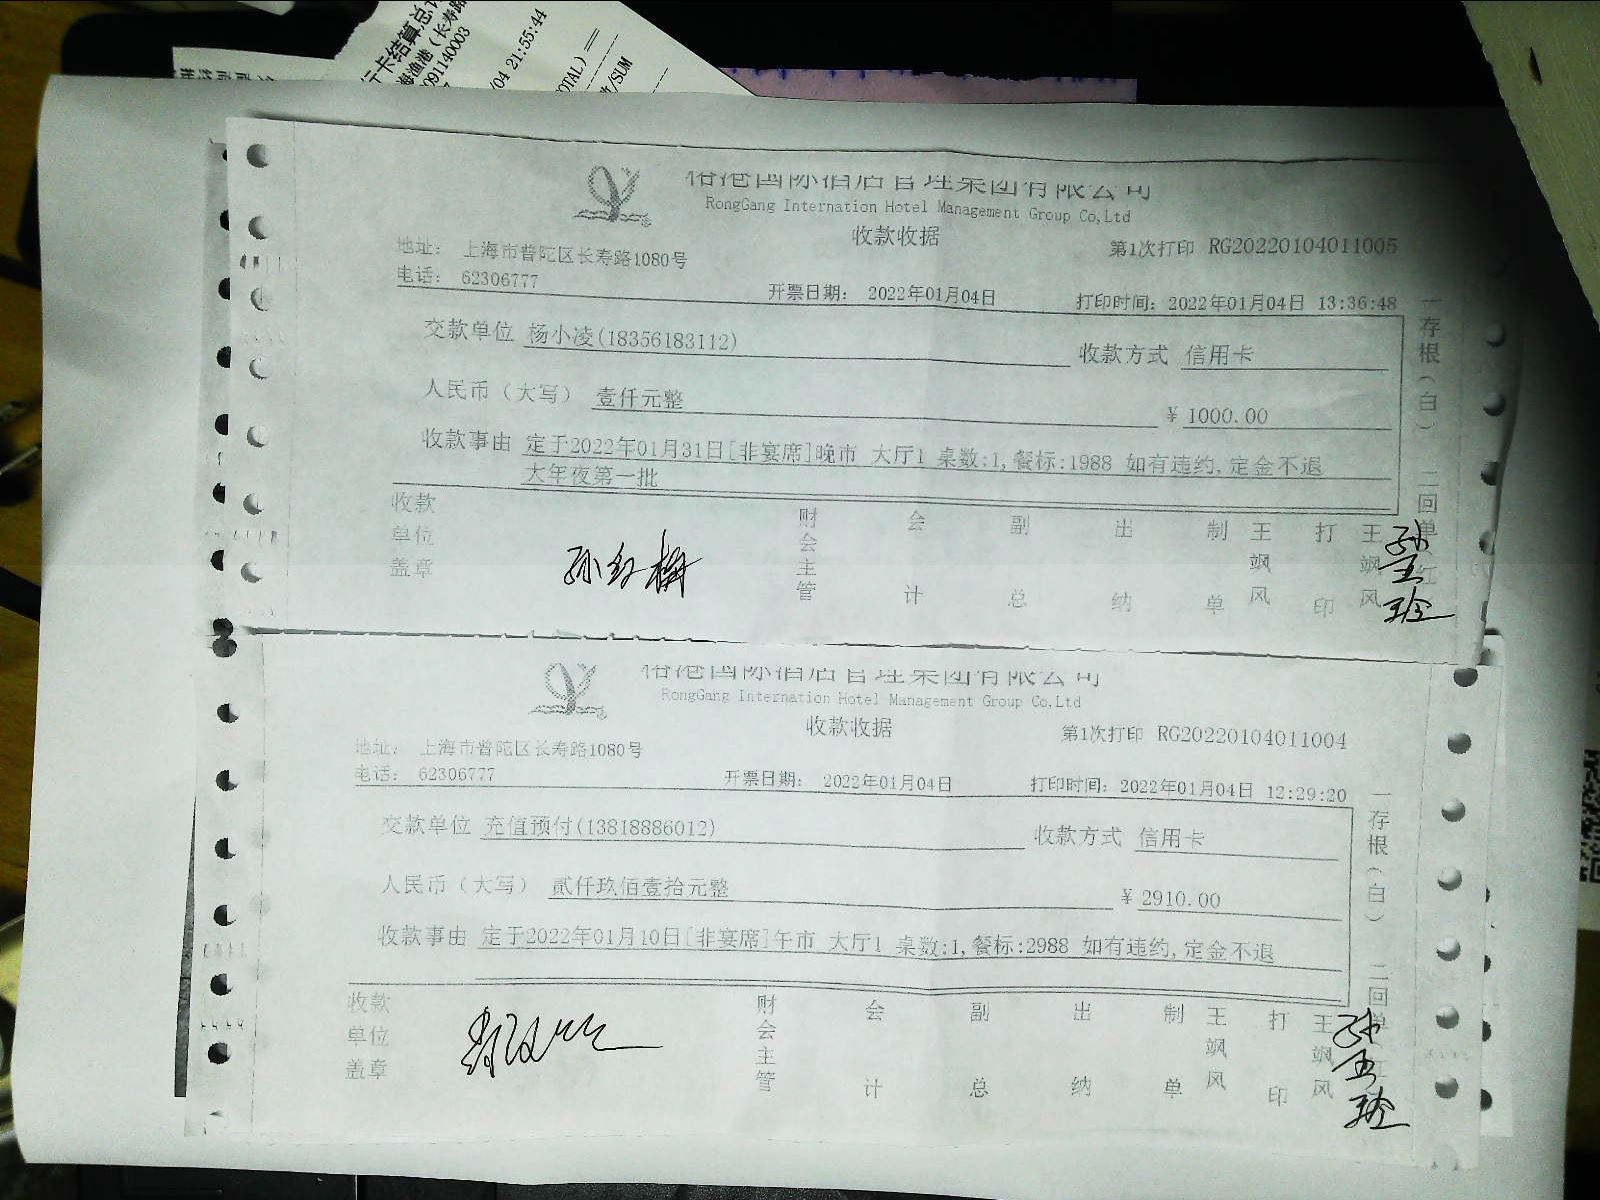 行卡结算总
海渔港（长寿路
091140003
/04 21:55:44
OTAL)
t/SUM
裕港国际酒店管理集团有限公司
RongGang Internation Hotel Management Group Co,Ltd
收款收据
第1次打印 RG20220104011005
地址： 上海市普陀区长寿路1080号
电话： 62306777
开票日期： 2022年01月04日
打印时间：2022年01月04日 13:36:48
交款单位 杨小凌(18356183112)
收款方式 信用卡
人民币（大写） 壹仟元整
¥ 1000.00
收款事由 定于2022年01月31日[非宴席]晚市 大厅1 桌数:1,餐标:1988 如有违约,定金不退
大年夜第一批
一存根（白） 二回单（红
收款单位盖章
孙红梅
财会主管
会计
副总
出纳
制单
王飒风
打印
王飒风
裕港国际酒店管理集团有限公司
RongGang Internation Hotel Management Group Co,Ltd
收款收据
第1次打印 RG20220104011004
地址： 上海市普陀区长寿路1080号
电话： 62306777
开票日期： 2022年01月04日
打印时间：2022年01月04日 12:29:20
交款单位 充值预付(13818886012)
收款方式 信用卡
人民币（大写） 贰仟玖佰壹拾元整
¥ 2910.00
收款事由 定于2022年01月10日[非宴席]午市 大厅1 桌数:1,餐标:2988 如有违约,定金不退
一存根（白） 二回单
收款单位盖章
财会主管
会计
副总
出纳
制单
王飒风
打印
王飒风